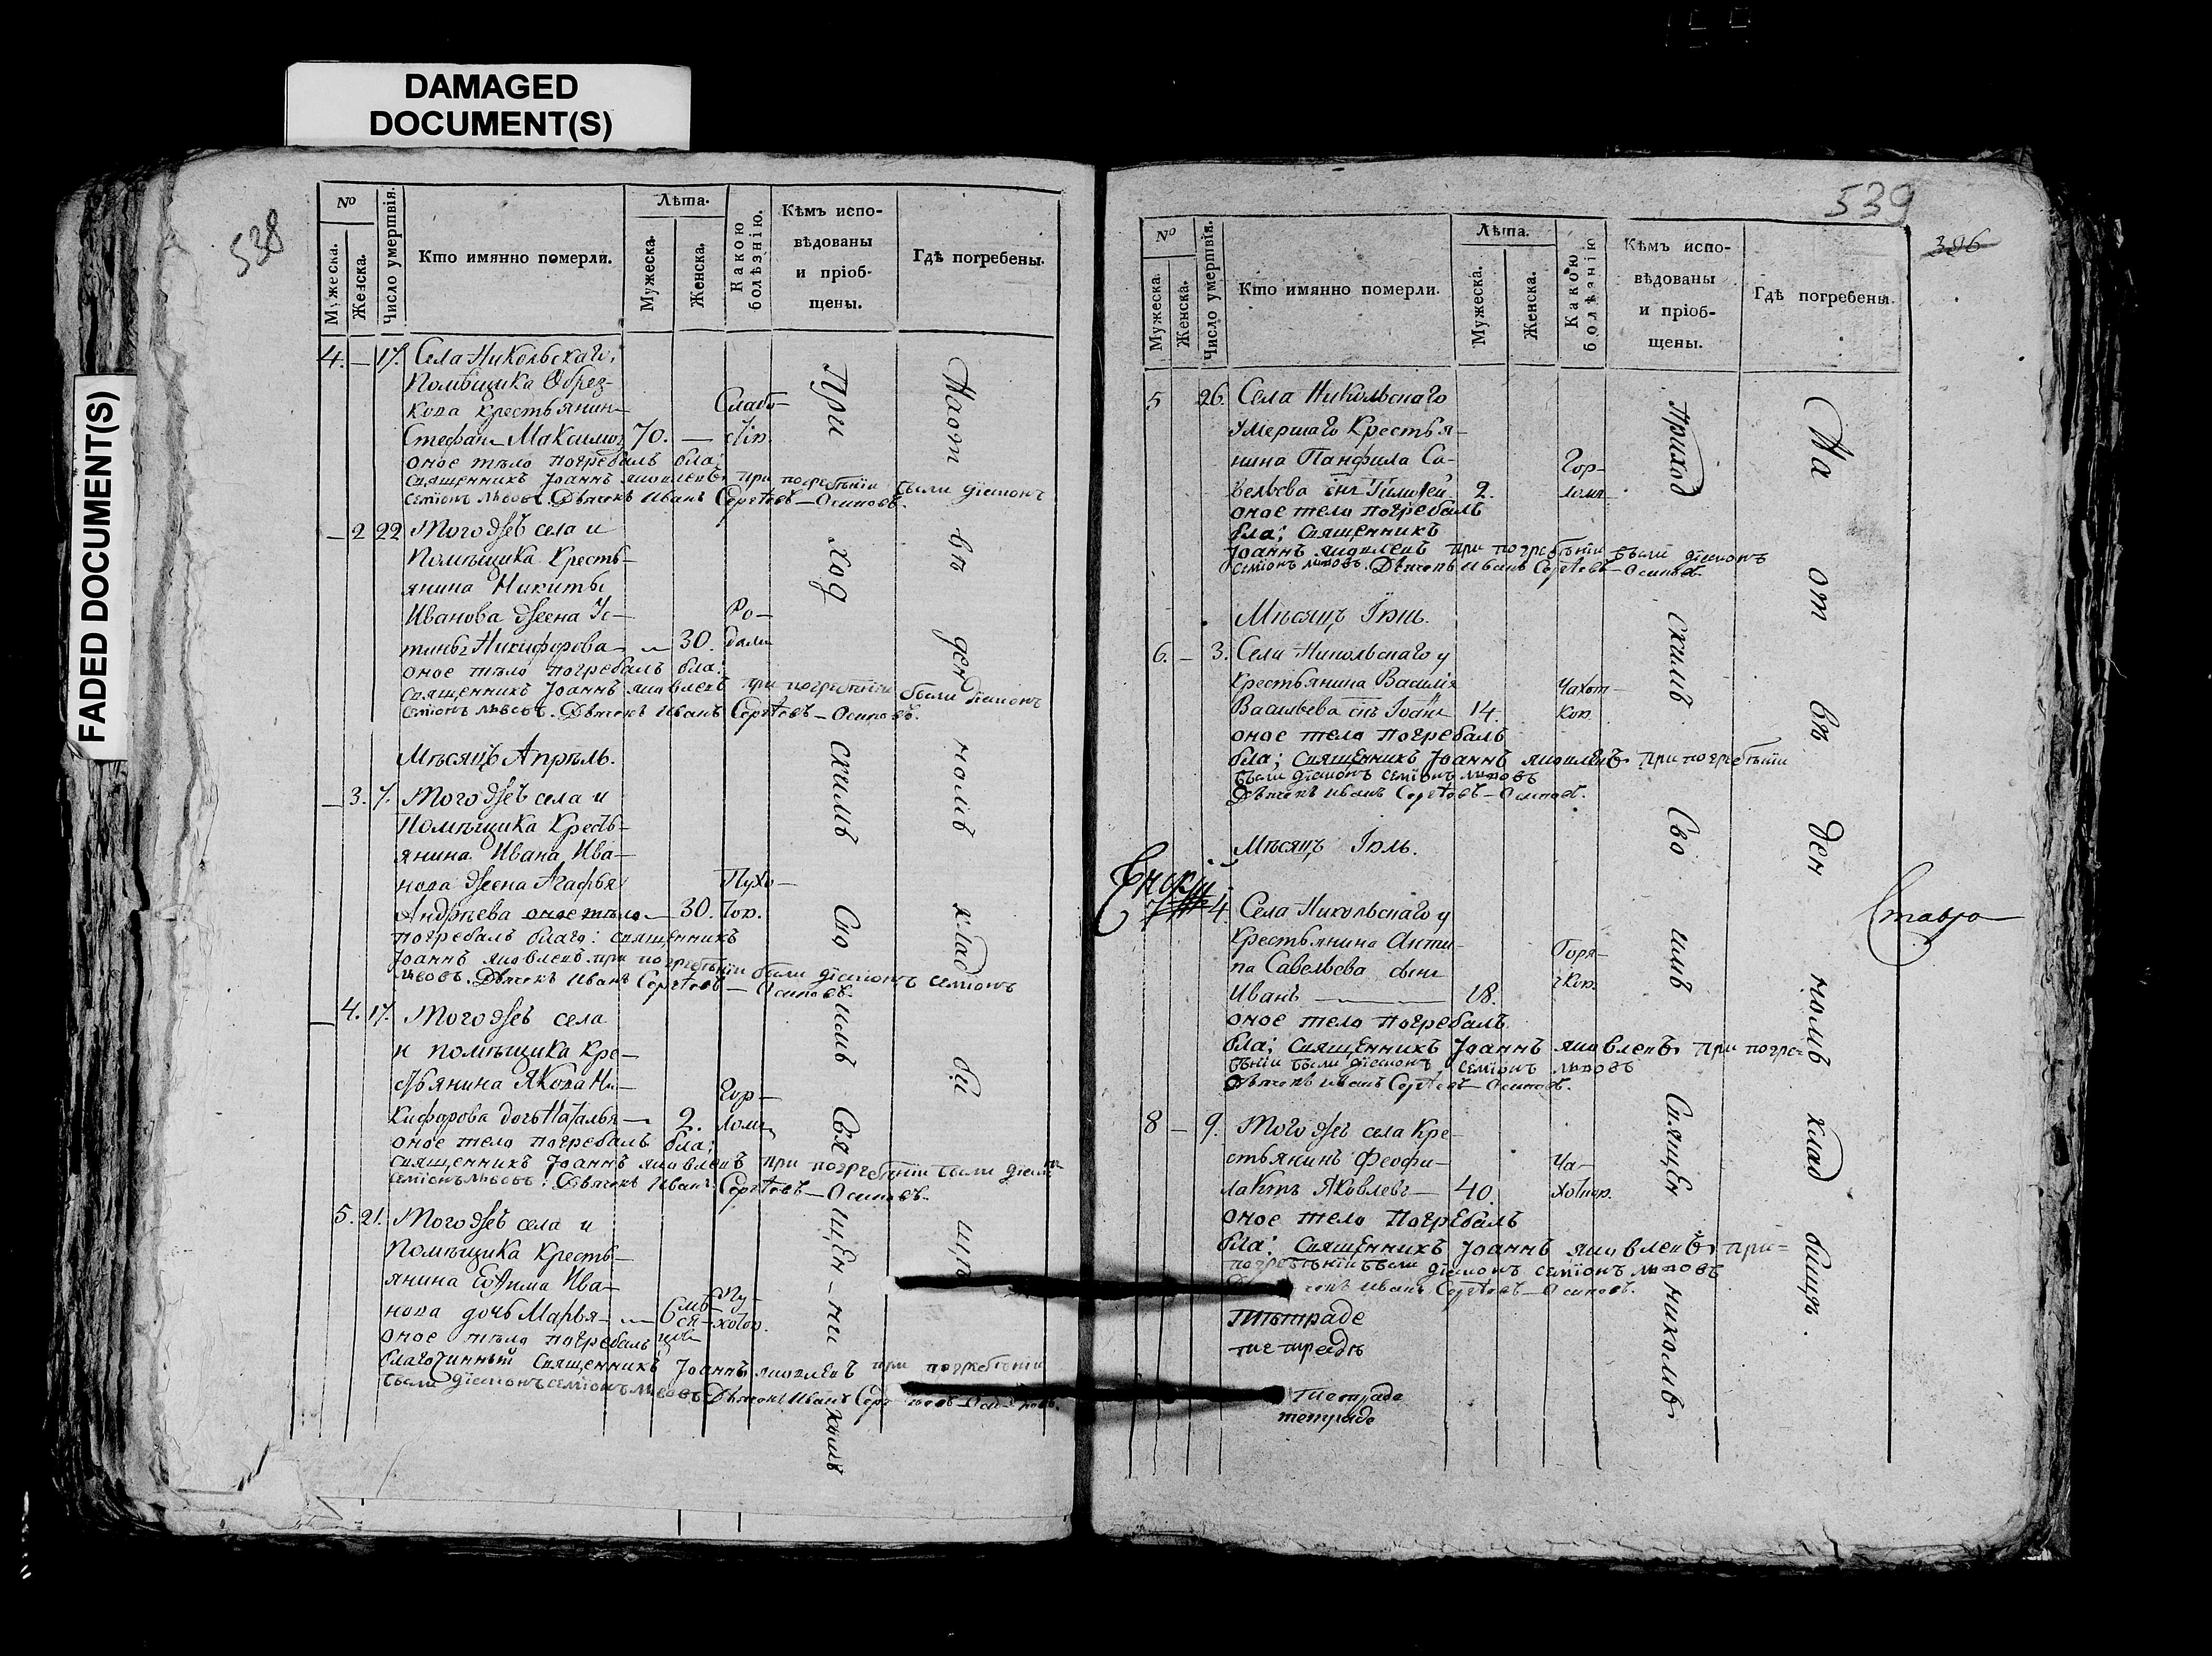 DAMAGED
DOCUMENT(S)
FADED DOCUMENT(S)
538
№
Мужеска.
Женска.
Число умершвія.
Кто имянно померли.
Лѣта.
Мужеска.
Женска.
Какою
болѣзнію.
Кѣмъ испо-
вѣдованы
и пріоб-
щены.
Гдѣ погребены.
4. — 17. Села Никольскаго,
помѣщика Обрез-
кова крестьянин Слабо-
Стефан Максимо 70. —
оное тѣло погребалъ бла:
священникъ Іоаннъ яковлевъ при погребѣніи были діяконъ
семіонъ львовъ. Дьячекъ Иванъ Сергѣевъ — Осиповъ.
— 2 22 Того жеъ села и
помѣщика кресть-
янина Никиты
Иванова жена Ус- Ро-
тинья Никифорова — 30. дами
оное тѣло погребалъ бла:
священникъ Іоаннъ яковлевъ при погребѣніи были діяконъ
семіонъ львовъ. Дьячекъ Иванъ Сергѣевъ — Осиповъ.
Мѣсяцъ Апрѣль.
— 3. 7. Того жеъ села и
помѣщика кресть-
янина Ивана Ива-
нова жена Агафья Пухо-
Андрѣева оное тѣло — 30. тор.
погребалъ благо: священникъ
Іоаннъ яковлевъ при погребѣніи были діяконъ семіонъ
львовъ. Дьячекъ Иванъ Сергѣевъ — Осиповъ.
— 4. 17. Того жеъ села
и помѣщика кре-
стьянина Якова Ни- Гор-
кифорова дочь Наталья — 2. лом
оное тело погребалъ бла;
священникъ Іоаннъ яковлевъ при погребѣніи были діякон
семіонъ львовъ. Дьячекъ Иванъ Сергѣевъ — Осиповъ.
5. 21. Того жеъ села и
помѣщика кресть-
янина Ефима Ива- Пу-
нова дочь Марья — 6 мѣ- хотор.
ся-
цов
оное тѣло погребалъ
благочинный священникъ Іоаннъ яковлевъ при погребѣніи
были діяконъ семіонъ львовъ Дьячекъ Иванъ Серг
При
ход
скимъ
Сво
имъ
Свя
щен-
ни
комъ
На от
въ
ден
номъ
клад
би
щѣ
539
386
№
Мужеска.
Женска.
Число умершвія.
Кто имянно померли.
Лѣта.
Мужеска.
Женска.
Какою
болѣзнію
Кѣмъ испо-
вѣдованы
и пріоб-
щены.
Гдѣ погребены.
5 26. Села Никольскаго
умершаго крестья-
нина Панфила Са- Гор-
вельева снъ Тимофей 2. лом
оное тело погребалъ
бла; священникъ
Іоаннъ яковлевъ при погребѣніи были діяконъ
семіонъ львовъ. Дьячекъ Иванъ Сергѣевъ — Осиповъ
Мѣсяцъ Іюнь.
6. — 3. Села Никольскаго у
крестьянина Василія Чахот-
Васильева снъ Іоанн 14. кою
оное тело погребалъ
бла; священникъ Іоаннъ яковлевъ при погребѣніи
были діяконъ семіонъ львовъ
Дьячекъ Иванъ Сергѣевъ — Осиповъ.
Мѣсяцъ Іюль.
7 4. Села Никольскаго у
крестьянина Анти- Горя-
па Савельева сынъ чкою
Иванъ — 18.
оное тело погребалъ
бла; священникъ Іоаннъ яковлевъ при погре-
бѣніи были діяконъ семіонъ львовъ
Дьячекъ Иванъ Сергѣевъ — Осиповъ.
8 — 9. Того жеъ села кре-
стьянинъ Феофи- Ча-
лактъ Яковлевъ — 40. хоткою
оное тело погребалъ
бла: священникъ Іоаннъ яковлевъ при-
погребѣніи были діяконъ семіонъ львовъ
Иванъ Сергѣевъ — Осиповъ.
тетраде
тетраде
тетраде
Приход
скимъ
Сво
имъ
Священ
никомъ
На
от
въ
ден
номъ
клад
бищѣ.
Ставро